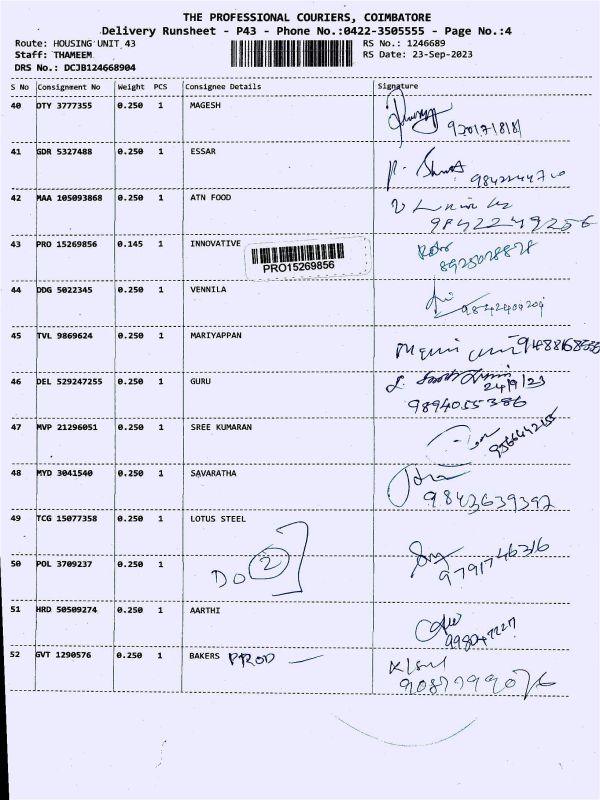 THE PROFESSIONAL COURIERS, COIMBATORE
Delivery Runsheet - P43 - Phone No.:0422-3505555 - Page No.:4
Route: HOUSING UNIT 43 RS No.: 1246689
Staff: THAMEEM RS Date: 23-Sep-2023
DRS No.: DCJB124668904
S No Consignment No Weight PCS Consignee Details Signature
40 DTY 3777355 0.250 1 MAGESH
41 GDR 5327488 0.250 1 ESSAR
42 MAA 105093868 0.250 1 ATN FOOD
9842249256
43 PRO 15269856 0.145 1 INNOVATIVE
PRO15269856
8925028828
44 DDG 5022345 0.250 1 VENNILA
45 TVL 9869624 0.250 1 MARIYAPPAN
46 DEL 529247255 0.250 1 GURU
24/9/23
9894055386
47 MVP 21296051 0.250 1 SREE KUMARAN
9566642155
48 MYD 3041540 0.250 1 SAVARATHA
9843639392
49 TCG 15077358 0.250 1 LOTUS STEEL
50 POL 3709237 0.250 1
DO 2
9791746316
51 HRD 50509274 0.250 1 AARTHI
52 GVT 1290576 0.250 1 BAKERS PROD
9087799076